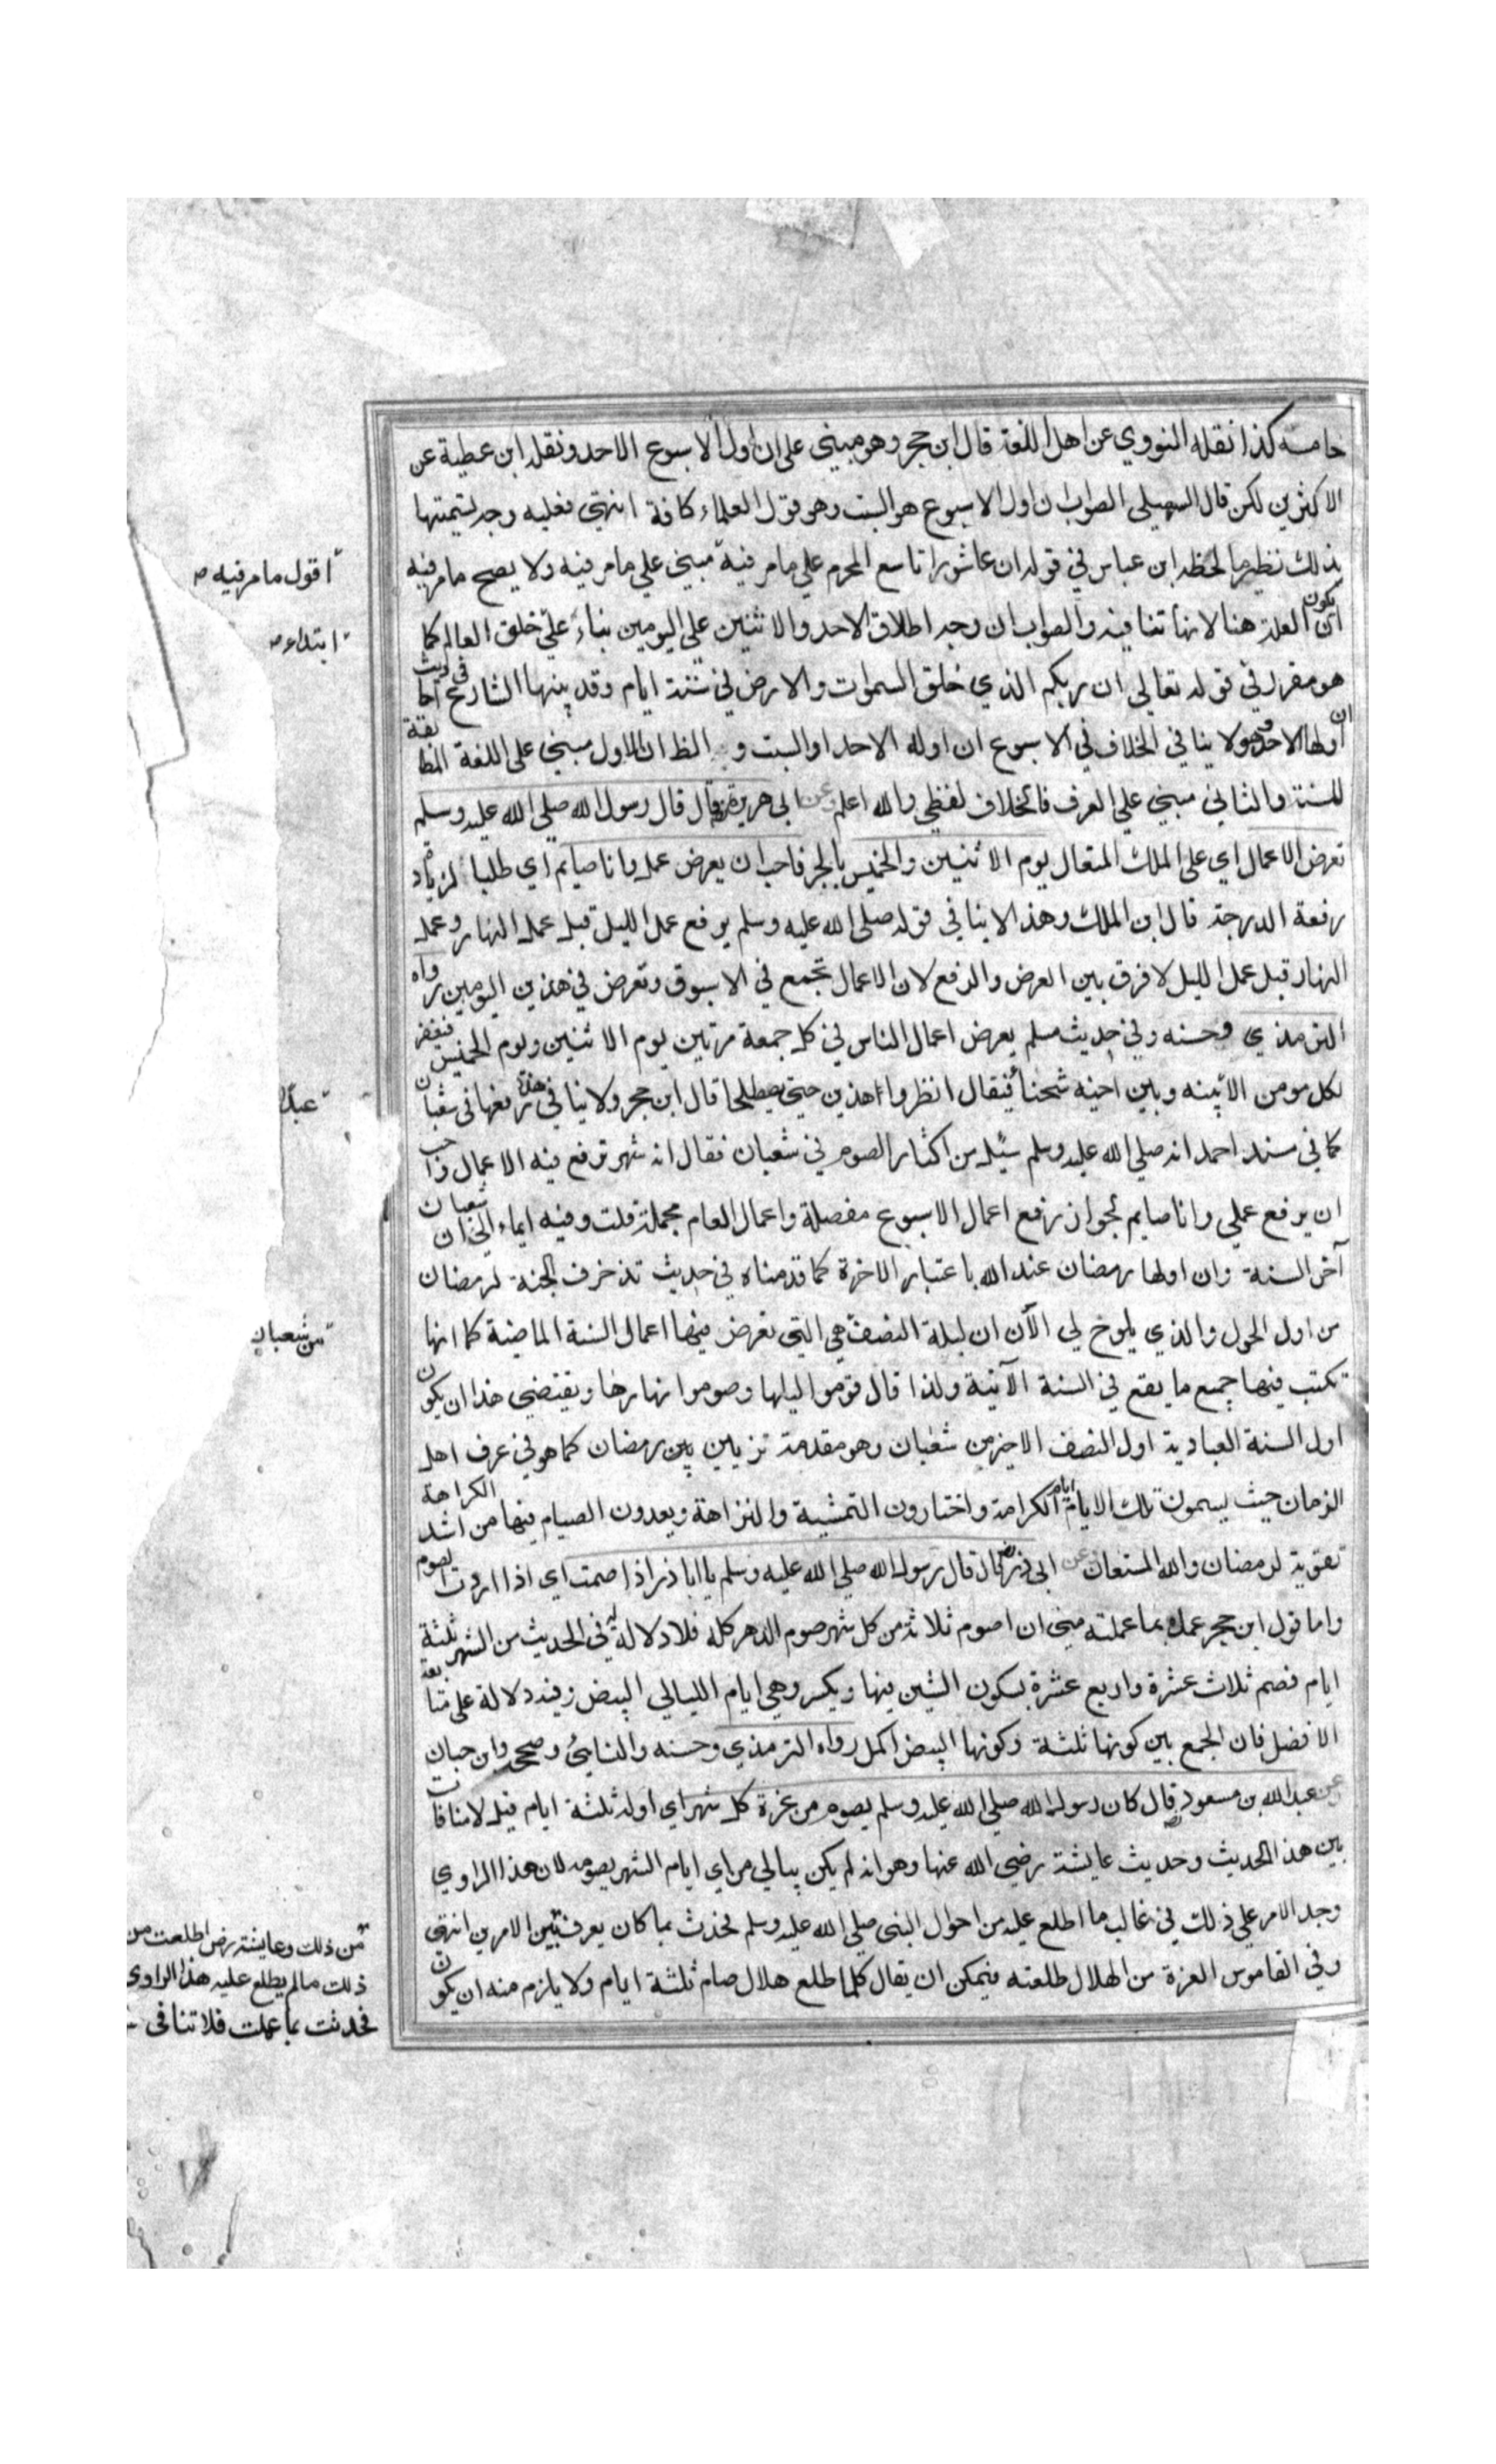 خامسه كذا نقله النووي عن اهل اللغة قال ابن حجر وهو مبني على ان اول الاسبوع الاحد ونقله ابن عطية عن
الاكثرين لكن قال السهيلي الصواب ان اول الاسبوع هو السبت وهو قول العلماء كافة انتهى فعليه وجه تسميتها
بذلك نظير ما لحظه ابن عباس في قوله ان عاشورا تاسع المحرم علي ما مر فيه مبني علي ما مر فيه ولا يصح ما مر فيه
ان يكون العلة هنا لانها تنافيه والصواب ان وجه اطلاق الاحد والاثنين على اليومين بناء على خلق العالم كما
هو مقرر في قوله تعالى ان ربكم الذي خلق السموات والارض في ستة ايام وقد بينها الشارع في احاديث
ان اولها الاحد وهو لا ينافي الخلاف في الاسبوع ان اوله الاحد او السبت و الظ ان الاول مبني على اللغة المطابقة
للسنة والثاني مبني علي العرف فالخلاف لفظي والله اعلم وعن ابي هريرة رض قال قال رسول الله صلى الله عليه وسلم
تعرض الاعمال اي على الملك المتعال يوم الاثنين والخميس بالجر فاحب ان يعرض عملي وانا صايم اي طلبا لزيادة
رفعة الدرجة قال ابن الملك وهذا لا ينافي قوله صلى الله عليه وسلم يرفع عمل الليل قبل عمل النهار وعمل
النهار قبل عمل الليل لا فرق بين العرض والرفع لان الاعمال تجمع في الاسبوع وتعرض في هذين اليومين رواه
الترمذي وحسنه وفي حديث مسلم يعرض اعمال الناس في كل جمعة مرتين يوم الاثنين ويوم الخميس فيغفر
لكل مومن الا بينه وبين اخيه شحناء فيقال انظروا هذين حتى يصطلحا قال ابن حجر ولا ينافي هذا رفعها في شعبان
كما في مسند احمد انه صلى الله عليه وسلم سئل من اكثار الصوم في شعبان فقال انه شهر ترفع فيه الاعمال واحب
ان يرفع عملي وانا صايم لجواز رفع اعمال الاسبوع مفصلة واعمال العام مجملة قلت وفيه ايماء الى ان شعبان
آخر السنة وان اولها رمضان عند الله باعتبار الاخرة كما قدمناه في حديث تزخرف الجنة لرمضان
من اول الحول والذي يلوح لي الآن ان ليلة النصف هي التي تعرض فيها اعمال السنة الماضية كما انها
تكتب فيها جميع ما يقع في السنة الآتية ولذا قال قوموا ليلها وصوموا نهارها ويقتضي هذا ان يكون
اول السنة العبادية اول النصف الاخير من شعبان وهو مقدمة تزيين بين رمضان كما هو في عرف اهل
الزمان حيث يسمون تلك الايام ايام الكرامة واختارون التمشية والنزاهة ويعدون الصيام فيها من اشد الكراهة
تقوية لرمضان والله المستعان وعن ابي ذر رض قال قال رسول الله صلى الله عليه وسلم يا ابا ذر اذا صمت اي اذا اردت الصوم
واما قول ابن حجر عمله بما عملته مني ان اصوم ثلاثة من كل شهر صوم الدهر كله فلا دلالة له في الحديث من الشهر ثلثة
ايام فصم ثلاث عشرة واربع عشرة بسكون الشين فيها ويكسر وهي ايام الليالي البيض وفيه دلالة على متابعة
الافضل فان الجمع بين كونها ثلثة وكونها البيض اكمل رواه الترمذي وحسنه والنسائي وصححه وابن حبان
وعن عبد الله بن مسعود رض قال كان رسول الله صلى الله عليه وسلم يصوم من غرة كل شهر اي اوله ثلثة ايام قيل لا منافات
بين هذا الحديث وحديث عايشة رضي الله عنها وهو انه لم يكن يبالي من اي ايام الشهر يصومه لان هذا الراوي
وجد الامر علي ذلك في غالب ما اطلع عليه من احوال النبي صلى الله عليه وسلم فحدث بما كان يعرف بين الامرين انتهى
وفي القاموس الغرة من الهلال طلعته فيمكن ان يقال كلما طلع هلال صام ثلثة ايام ولا يلزم منه ان يكون
اقول ما مر فيه ص
ابتداء ص
عبد
من شعبان
من ذلك وعايشة رض اطلعت من
ذلك ما لم يطلع عليه هذا الراوي
فحدثت بما علمت فلا تنافي